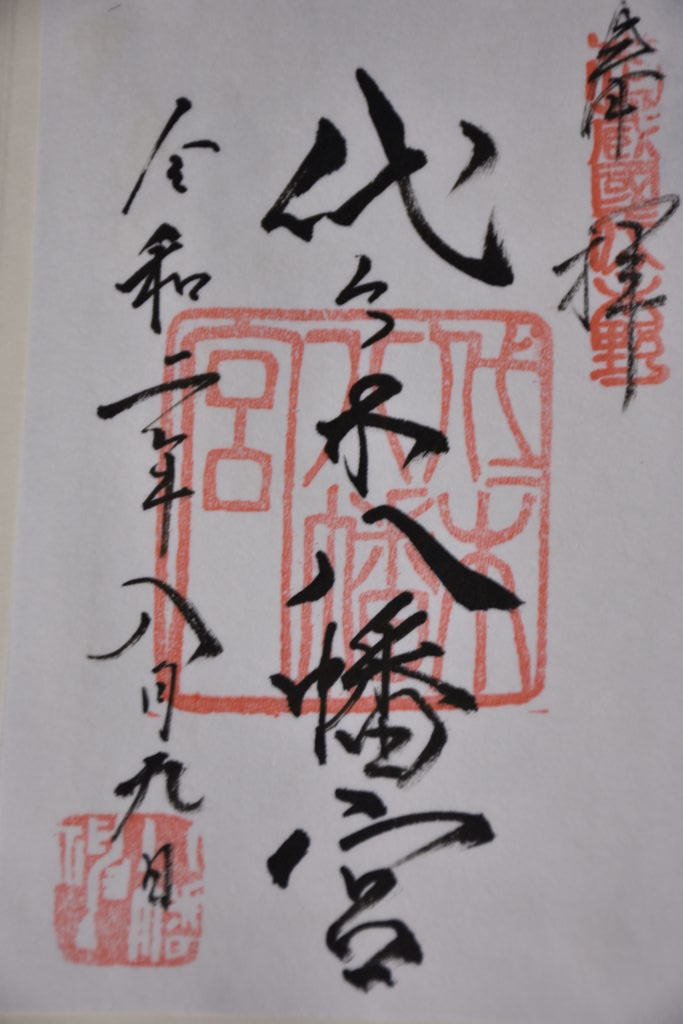 奉拝
武蔵國代々木野
代々木八幡宮
代々木八幡宮
令和二年八月九日